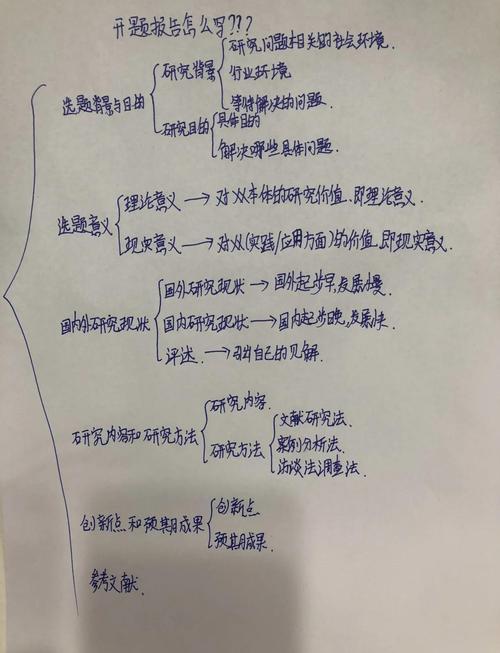 开题报告怎么写???
选题背景与目的
研究背景
研究问题相关的社会环境.
行业环境
等待解决的问题.
研究目的
具体目的
解决哪些具体问题.
选题意义
理论意义 → 对XX本体的研究价值,即理论意义.
现实意义 → 对XX(实践/应用方面)的价值,即现实意义.
国内外研究现状
国外研究现状 → 国外起步早,发展慢.
国内研究现状 → 国内起步晚,发展快.
评述. → 引出自己的见解.
研究内容和研究方法
研究内容.
研究方法
文献研究法.
案例分析法.
访谈法调查法.
创新点和预期成果
创新点
预期成果.
参考文献.